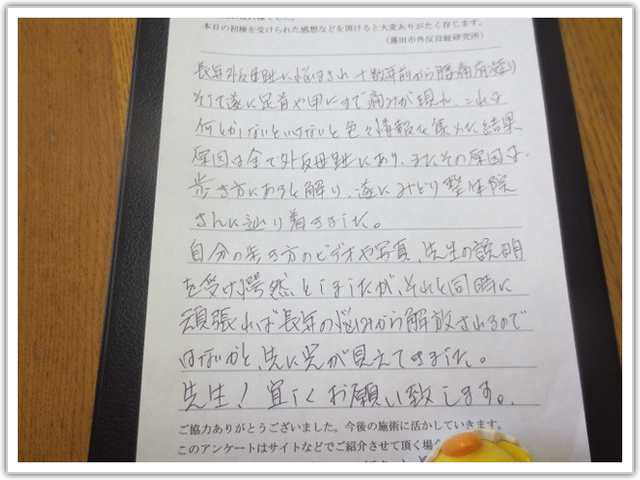 本日の初検を受けられた感想などを頂けると大変ありがたく存じます。
(蓮田市外反母趾研究所)
長年外反母趾に悩まされ、十数年前から腰痛、肩凝り
そして遂に足首や甲にまで痛みが現れ、これは
何とかしないといけないと色々情報を集めた結果
原因は全て外反母趾にあり、またその原因は、
歩き方にあると解り、遂にみどり整体院
さんに辿り着きました。
自分の歩き方のビデオや写真、先生の説明
を受け愕然としましたが、それと同時に
頑張れば長年の悩みから解放されるので
はないかと、先に光が見えてきました。
先生!宜しくお願い致します。
ご協力ありがとうございました。今後の施術に活かしていきます。
このアンケートはサイトなどでご紹介させて頂く場合